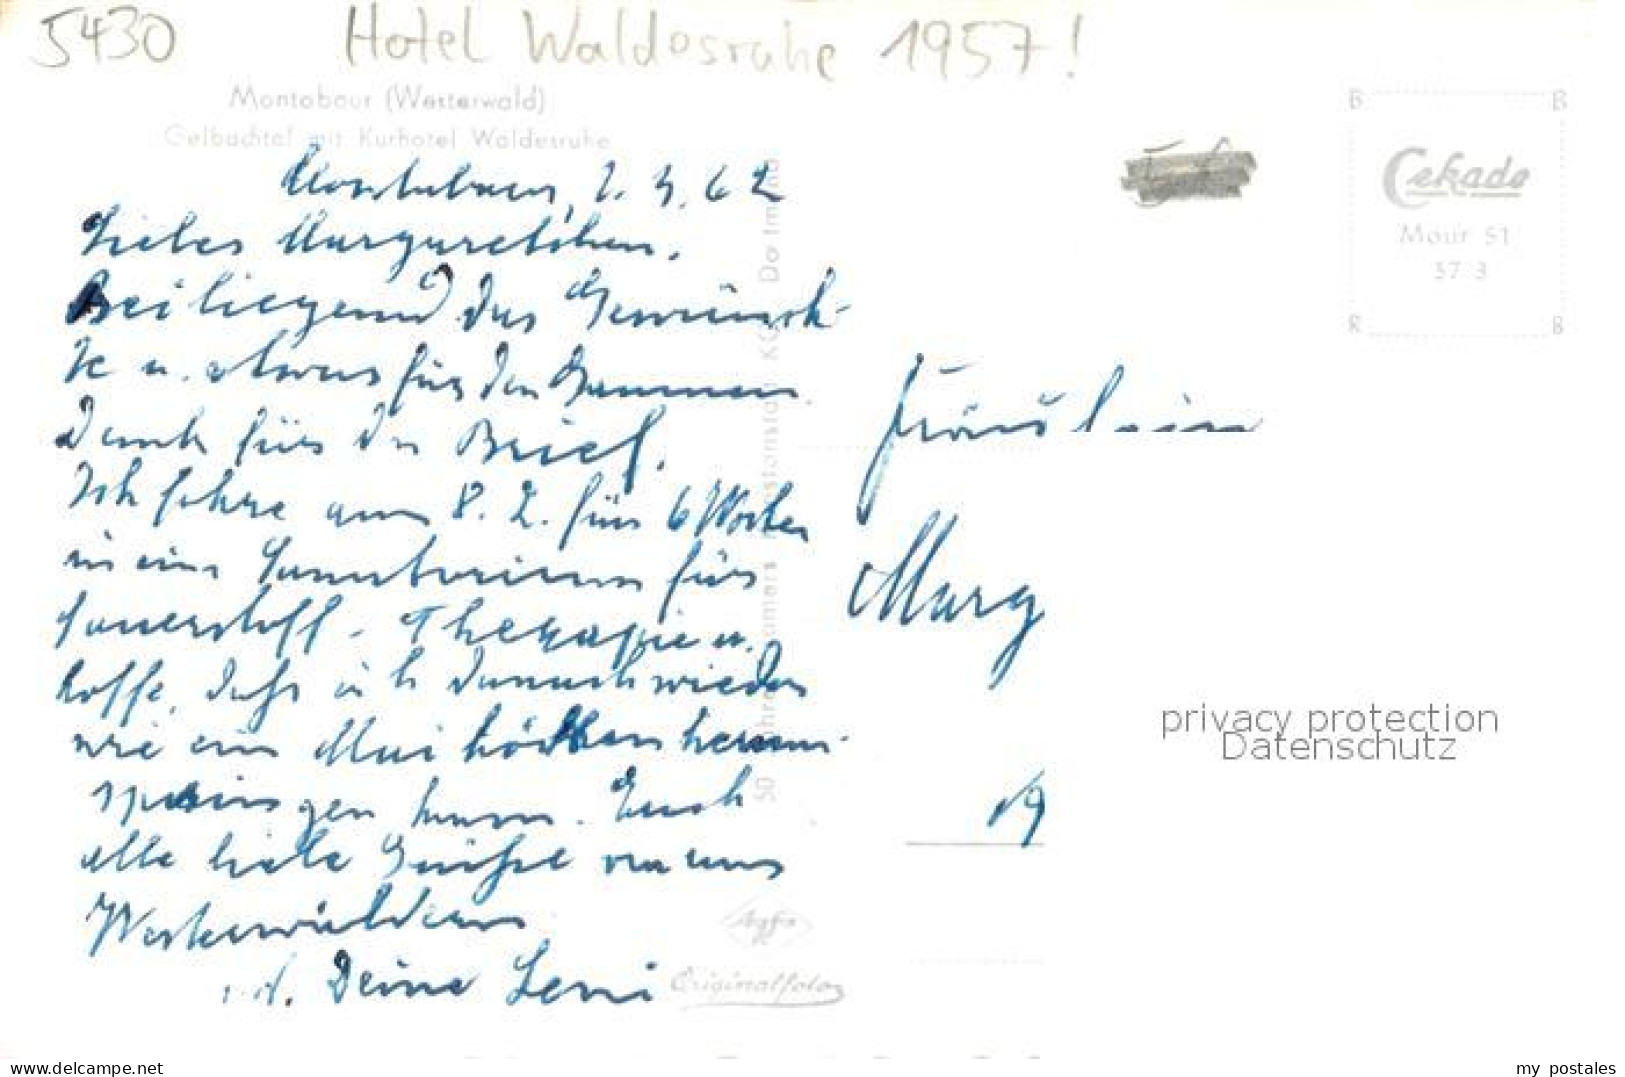 5430 Hotel Waldesruhe 1957!
Montabaur (Westerwald)
Gelbachtal mit Kurhotel Waldesruhe
Montabaur, 2.
62
Liebes Margaretchen.
Beiliegend das Gewünsch-
te u. etwas für den
Dank für den Brief.
Ich fahre am 8. 2. für 6 Wochen
in ein Sanatorium für
Sauerstoff - Therapie u.
hoffe, daß ich danach wieder
wie ein herum-
springen kann. Euch
alle liebe Grüße von uns
Westerwäldern
Deine Leni
Fräulein
Marg
19
Cekade
Mour 51
57 3
B B
R B
50 Jahre
Dortmund
Agfa
Originalfoto
privacy protection
Datenschutz
delcampe.net
my_postales